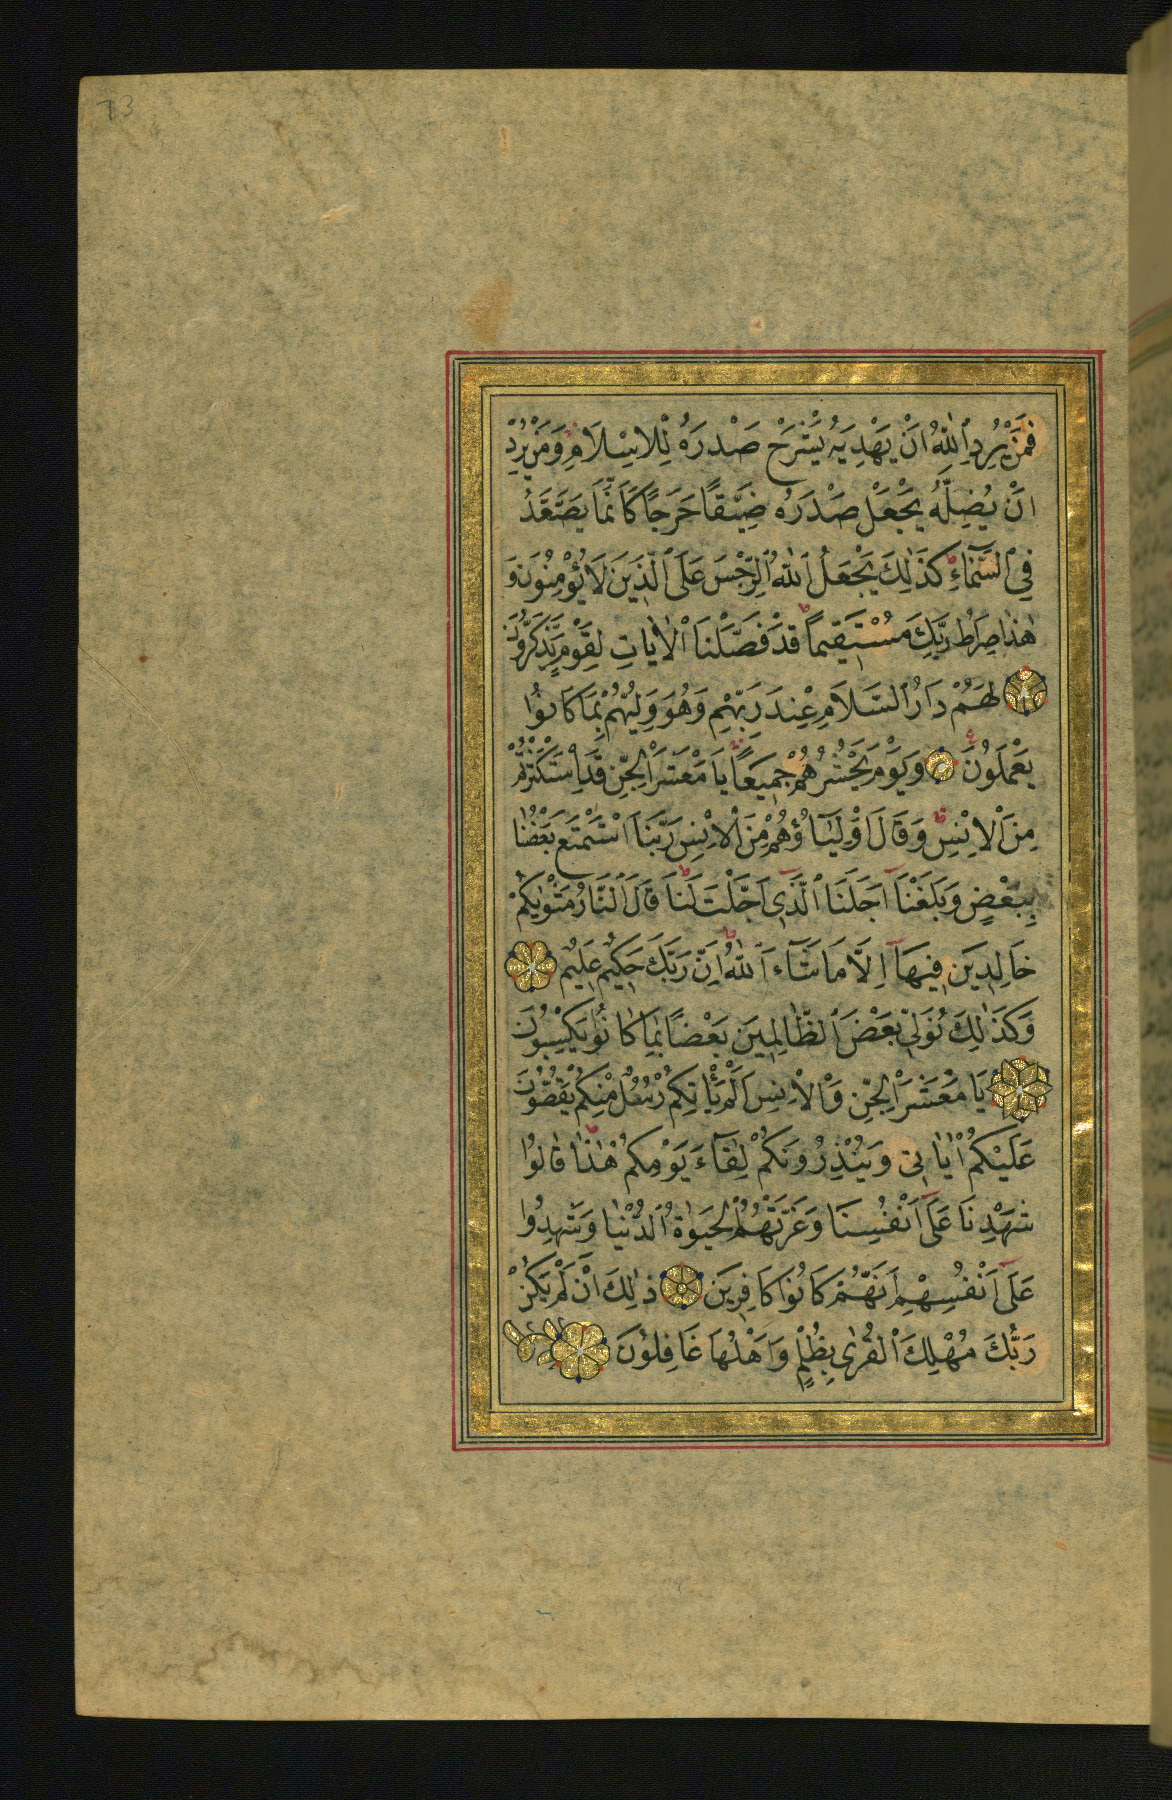 73
فَمَنْ يُرِدِ ٱللّٰهُ اَنْ يَهْدِيَهُ يَشْرَحْ صَدْرَهُ لِلْاِسْلَامِ وَمَنْ يُرِدْ
اَنْ يُضِلَّهُ يَجْعَلْ صَدْرَهُ ضَيِّقًا حَرَجًا كَاَنَّمَا يَصَّعَّدُ
فِي ٱلسَّمَاءِ كَذٰلِكَ يَجْعَلُ ٱللّٰهُ ٱلرِّجْسَ عَلَى ٱلَّذِينَ لَا يُؤْمِنُونَ وَ
هٰذَا صِرَاطُ رَبِّكَ مُسْتَقِيمًا قَدْ فَصَّلْنَا ٱلْاٰيَاتِ لِقَوْمٍ يَذَّكَّرُونَ
لَهُمْ دَارُ ٱلسَّلَامِ عِنْدَ رَبِّهِمْ وَهُوَ وَلِيُّهُمْ بِمَا كَانُوا
يَعْمَلُونَ وَيَوْمَ يَحْشُرُهُمْ جَمِيعًا يَا مَعْشَرَ ٱلْجِنِّ قَدِ ٱسْتَكْثَرْتُمْ
مِنَ ٱلْاِنْسِ وَقَالَ اَوْلِيَاؤُهُمْ مِنَ ٱلْاِنْسِ رَبَّنَا ٱسْتَمْتَعَ بَعْضُنَا
بِبَعْضٍ وَبَلَغْنَا اَجَلَنَا ٱلَّذِي اَجَّلْتَ لَنَا قَالَ ٱلنَّارُ مَثْوٰيكُمْ
خَالِدِينَ فِيهَا اِلَّا مَا شَاءَ ٱللّٰهُ اِنَّ رَبَّكَ حَكِيمٌ عَلِيمٌ
وَكَذٰلِكَ نُوَلِّي بَعْضَ ٱلظَّالِمِينَ بَعْضًا بِمَا كَانُوا يَكْسِبُونَ
يَا مَعْشَرَ ٱلْجِنِّ وَٱلْاِنْسِ اَلَمْ يَأْتِكُمْ رُسُلٌ مِنْكُمْ يَقُصُّونَ
عَلَيْكُمْ اٰيَاتِي وَيُنْذِرُونَكُمْ لِقَاءَ يَوْمِكُمْ هٰذَا قَالُوا
شَهِدْنَا عَلَى اَنْفُسِنَا وَغَرَّتْهُمُ ٱلْحَيٰوةُ ٱلدُّنْيَا وَشَهِدُوا
عَلَى اَنْفُسِهِمْ اَنَّهُمْ كَانُوا كَافِرِينَ ذٰلِكَ اَنْ لَمْ يَكُنْ
رَبُّكَ مُهْلِكَ ٱلْقُرٰى بِظُلْمٍ وَاَهْلُهَا غَافِلُونَ